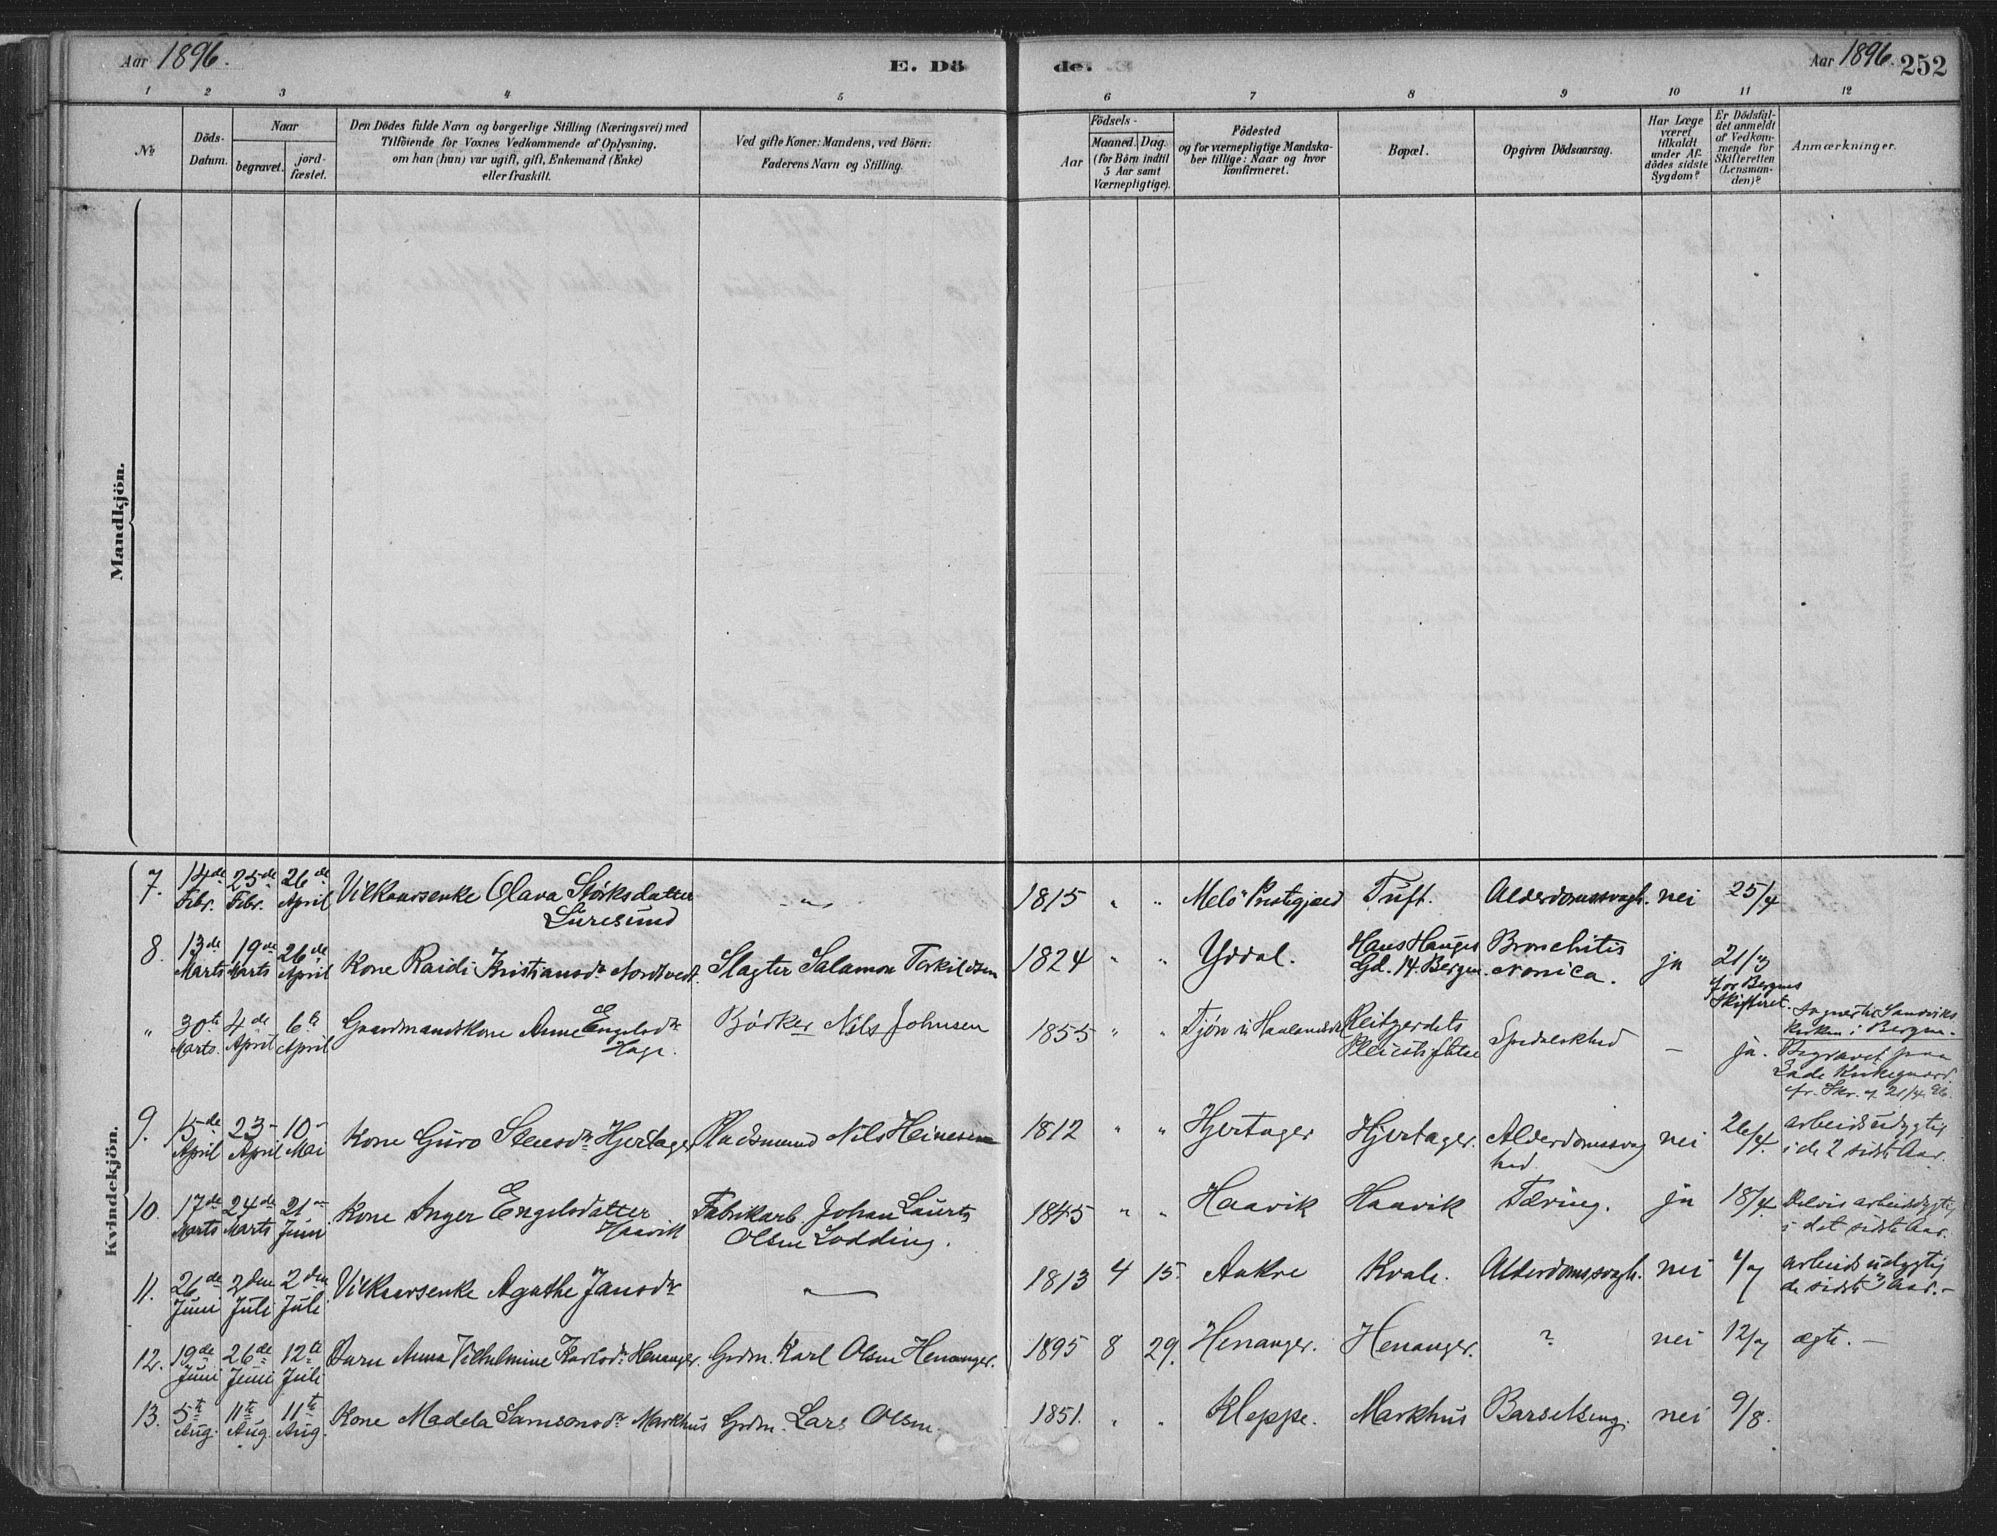 Aar 1896. E. Dö de. Aar 1896. 252
1 2 3 4 5 6 7 8 9 10 11 12
No
Döds-Datum.
Naar
begravet.
jordfæstet.
Den Dödes fulde Navn og borgerlige Stilling (Næringsvei) med
Tilföiende for Voxnes Vedkommende af Oplysning,
om han (hun) var ugift, gift, Enkemand (Enke)
eller fraskilt.
Ved gifte Koner: Mandens, ved Börn:
Faderens Navn og Stilling.
Födsels-
Aar
Maaned. Dag.
(for Börn indtil
5 Aar samt
Værnepligtige).
Födested
og for værnepligtige Mandska-
ber tillige: Naar og hvor
konfirmeret.
Bopæl.
Opgiven Dödsaarsag.
Har Læge
været
tilkaldt
under Af-
dödes sidste
Sygdom?
Er Dödsfal-
det anmeldt
af Vedkom-
mende for
Skifteretten
(Lensman-
den)?
Anmærkninger.
Mandkjön.
Kvindekjön.
7. 14de Febr. 25de Febr. 26de April Vilkaarsenke Olava Størksdatter Luresund — 1815 " " Melö Prestigjæld Tuft. Alderdomssvagh. nei 25/4
8. 13de Marts 19de Marts 26de April Kone Raidi Kristiansdr Nordtvedt. Slagter Salamon Torkildsen 1824 " " Yddal. Hans Hauges Gd. 14. Bergen. Bronchitis ja 21/3 for Bergens Skifteret.
" 30te Marts. 4de April 6te April Gaardmandskone Anne Engelsdr Hage. Bödker Nils Johnsen 1855 " " Spedalskhed — ja. Begravet paa
9. 15de April 23- April 10- Mai Kone Guro Stensdr Hjertager Pladsmand Nils Heinesen 1812 " " Hjertager Hjertager. Alderdomssvaghed nei 26/4. arbeidsudygtig i de 2 sidste Aar.
10. 17de Marts 24de Marts 21- Juni Kone Inger Engelsdatter Haavik Fabrikarb Johan Laurts Olsen Lodding. 1845 " " Haavik Haavik Tæring. ja 18/4. Delvis arbeidsdygtig i det sidste Aar.
11. 26de Juni 2den Juli 2den Juli Vilkaarsenke Agathe Jansdr — 1813 4 15. Aakre Kvale. Alderdomssvagh. nei 4/7 arbeidsudygtig de sidste 3 Aar.-
12. 19de Juni 26de Juni 12te Juli Barn Anna Vilhelmine Karlsdr Henanger. Grdm. Karl Olsen Henanger. 1895 8 29. Henanger. Henanger. ? nei 12/7 ægte. —
13. 5te Aug. 11te Aug. 11te Aug. Kone Madela Samsonsdr Markhus Grdm. Lars Olsen. 1851. " " Kleppe. Markhus Barselseng. nei 9/8.